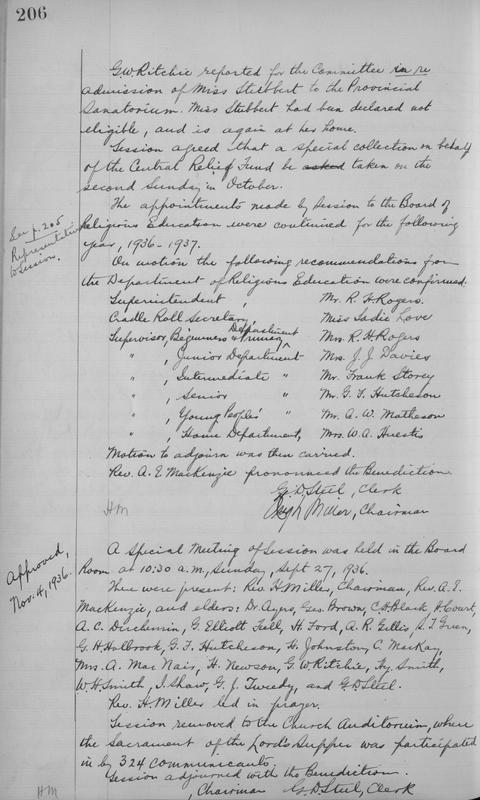 206
G W Ritchie reported for the Committee in re
admission of Miss Stebbert to the Provincial
Sanatorium. Miss Stebbert had been declared not
eligible, and is again at her home.
Session agreed that a special collection on behalf
of the Central Relief Fund be asked taken on the
second Sunday in October.
The appointments made by Session to the Board of
Religious Education were continued for the following
year, 1936-1937.
See p. 205
Representatives
to Session.
On motion the following recommendations for
the Department of Religious Education were confirmed:
Superintendent , Mr. R. H. Rogers.
Cradle Roll Secretary, Miss Sadie Love
Supervisor, Beginners & Primary Department Mrs. R. H. Rogers
" , Junior Department Mrs. J. J. Davies
" , Intermediate " Mr. Frank Storey
" , Senior " Mr. G. F. Hutcheson
" , Young Peoples' " Mr. A. W. Matheson
" , Home Department, Mrs. W. A. Huestis
Motion to adjourn was then carried.
Rev. A. E. MacKenzie pronounced the Benediction.
G. D. Steel, Clerk
HM Hugh Miller, Chairman
Approved,
Nov. 4, 1936.
A Special Meeting of Session was held in the Board
Room at 10:30 a.m., Sunday, Sept 27, 1936.
There were present: Rev. H. Miller, Chairman, Rev. A. E.
MacKenzie, and elders: Dr. Ayers, Geo. Brown, C. D. Black, H. Court,
A. C. G. Elliott Full, H. Ford, A. R. Gillis, S. T. Green,
G. H. Holbrook, G. F. Hutcheson, H. Johnston, C. MacKay,
Mrs. A. Mac Nair, H. Newson, G. W. Ritchie, Hy. Smith,
W. H. Smith, I. Shaw, G. J. Tweedy, and G. D. Steel.
Rev. H. Miller led in prayer.
Session removed to the Church Auditorium, where
the Sacrament of the Lord's Supper was participated
in by 324 communicants.
Session adjourned with the Benediction.
HM , Chairman G. D. Steel, Clerk